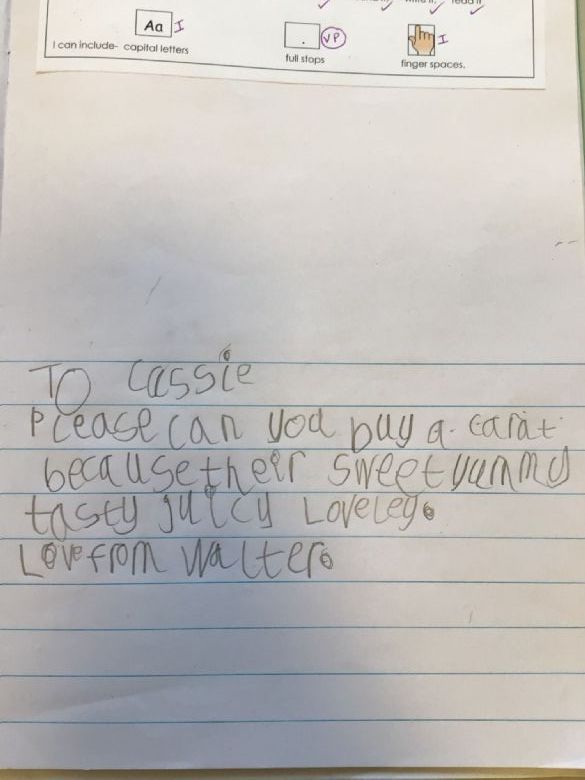 write it. read it
Aa I . VP I
I can include- capital letters full stops finger spaces.
To Cassie
Please can you buy a carat
because their sweet yummy
tasty juicy Loveley.
Love from Walter.